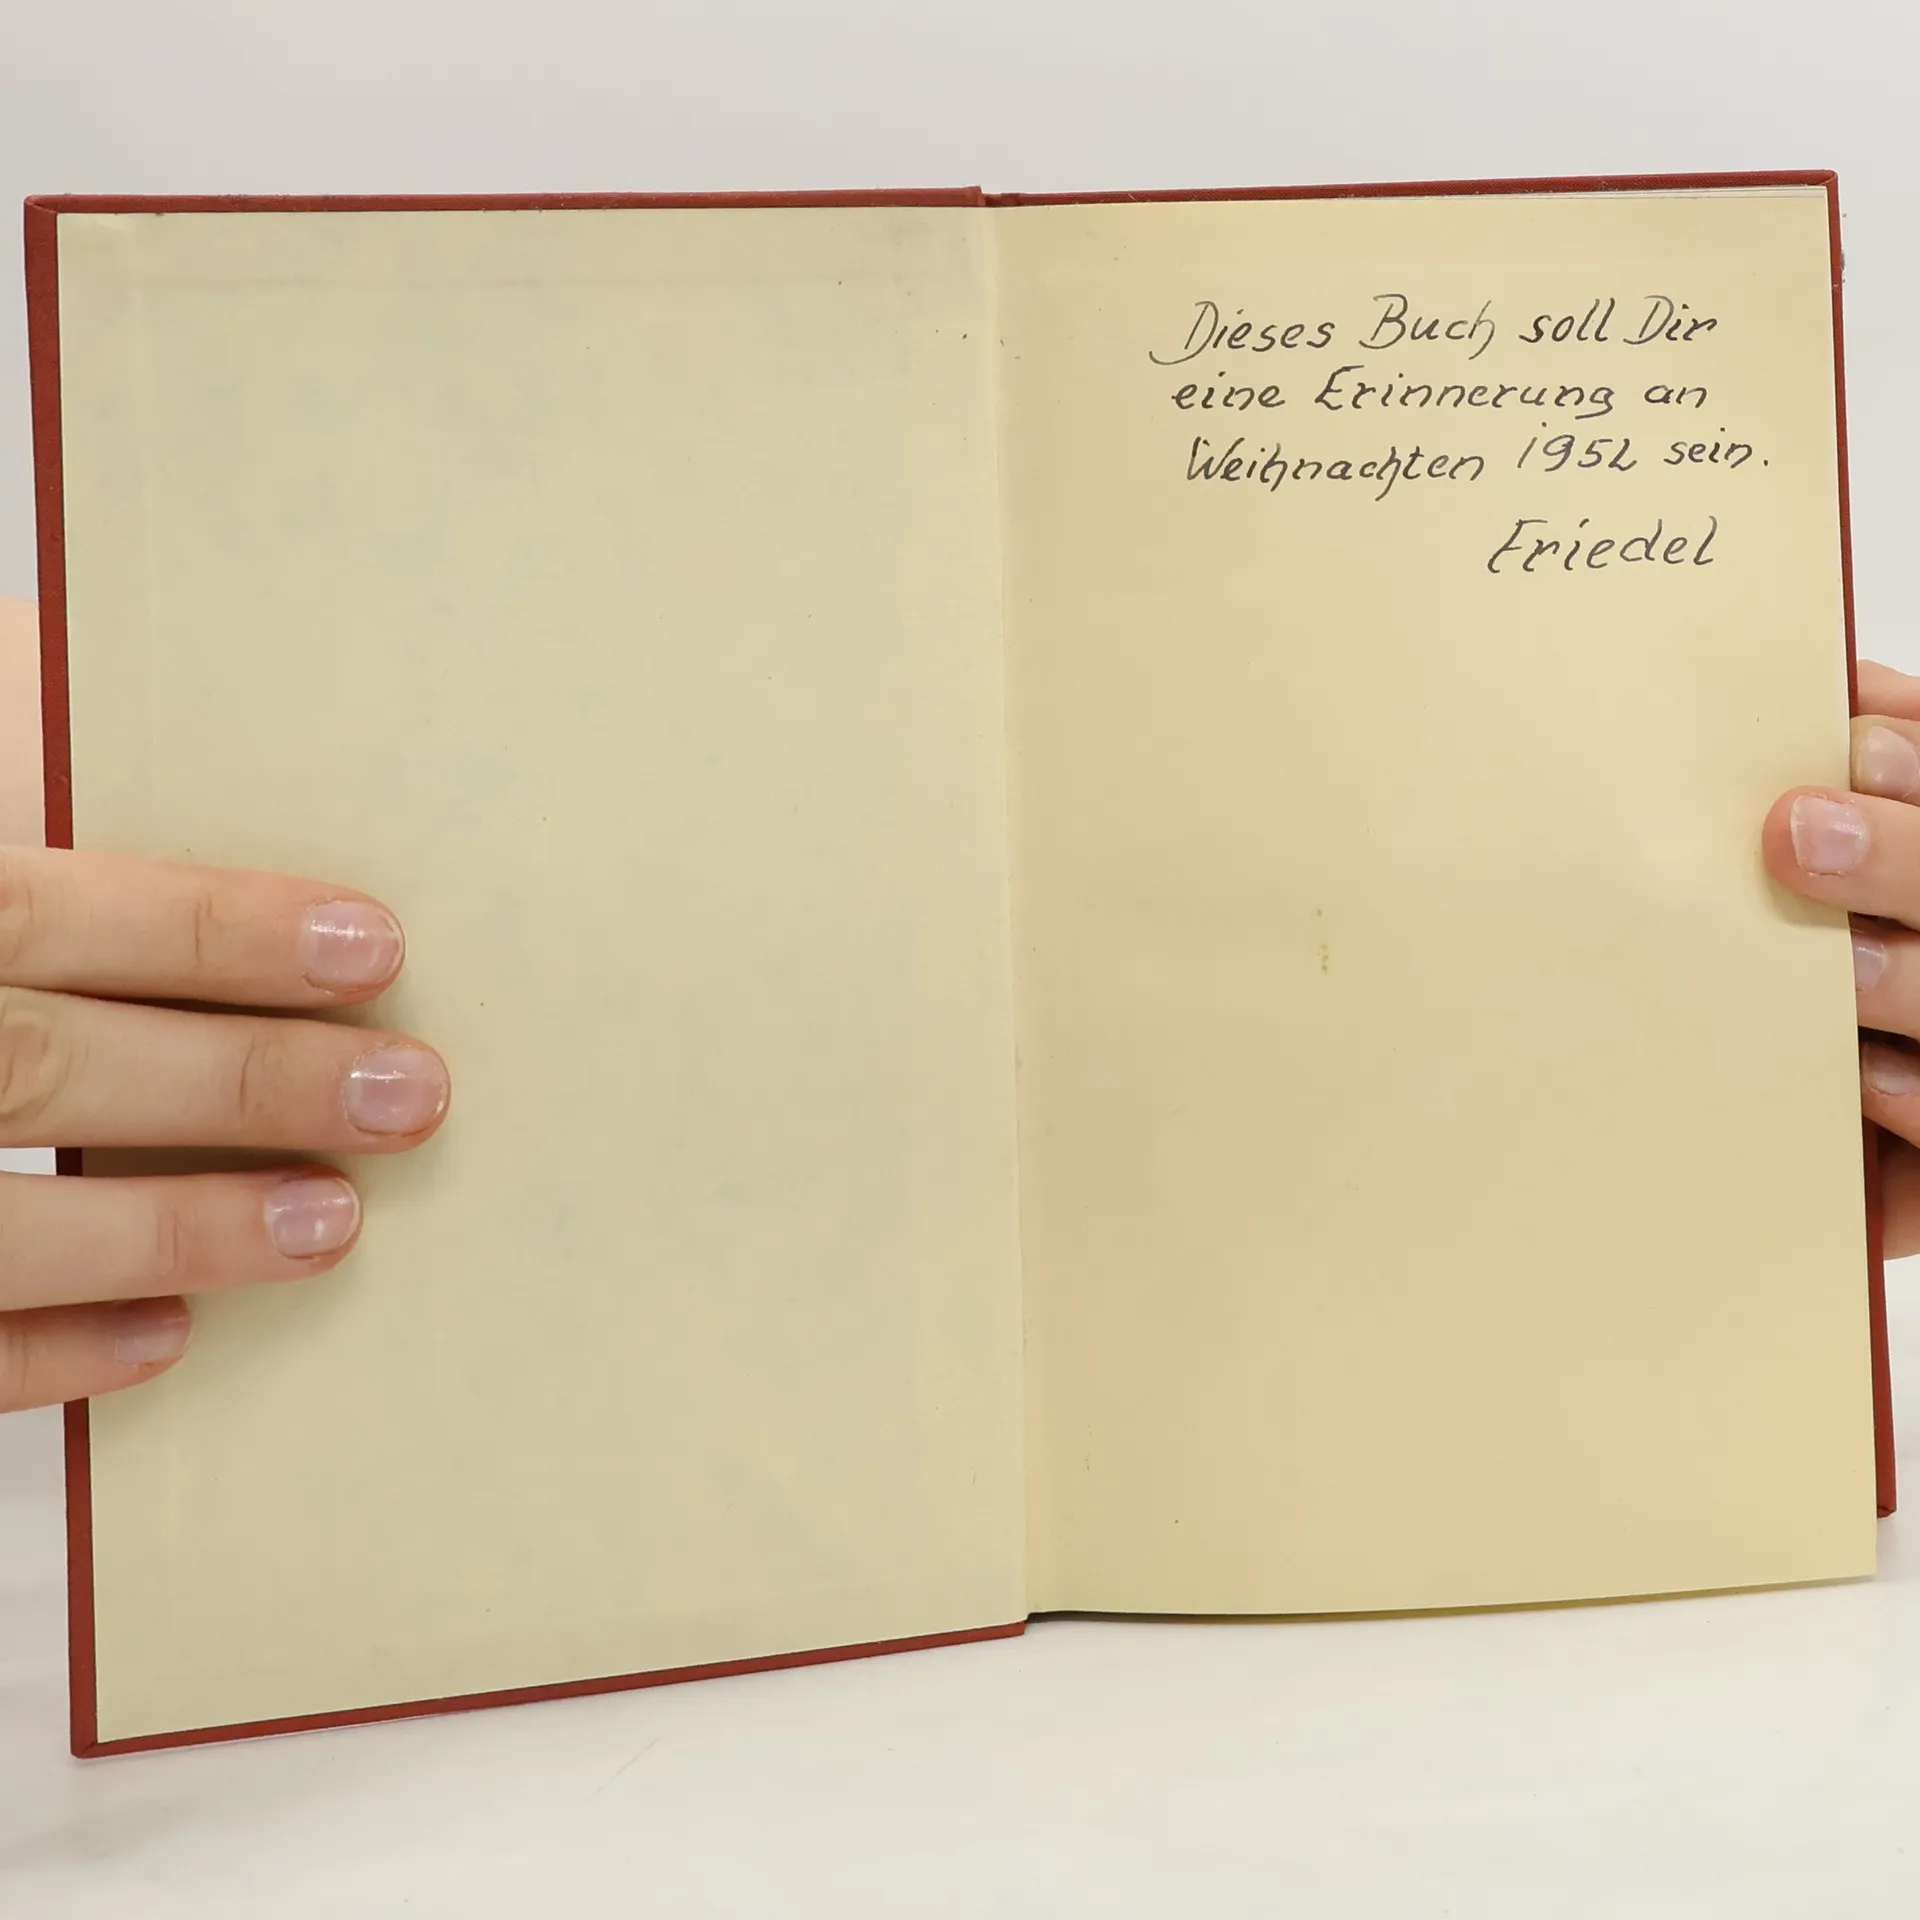 Dieses Buch soll Dir
eine Erinnerung an
Weihnachten 1952 sein.
Friedel